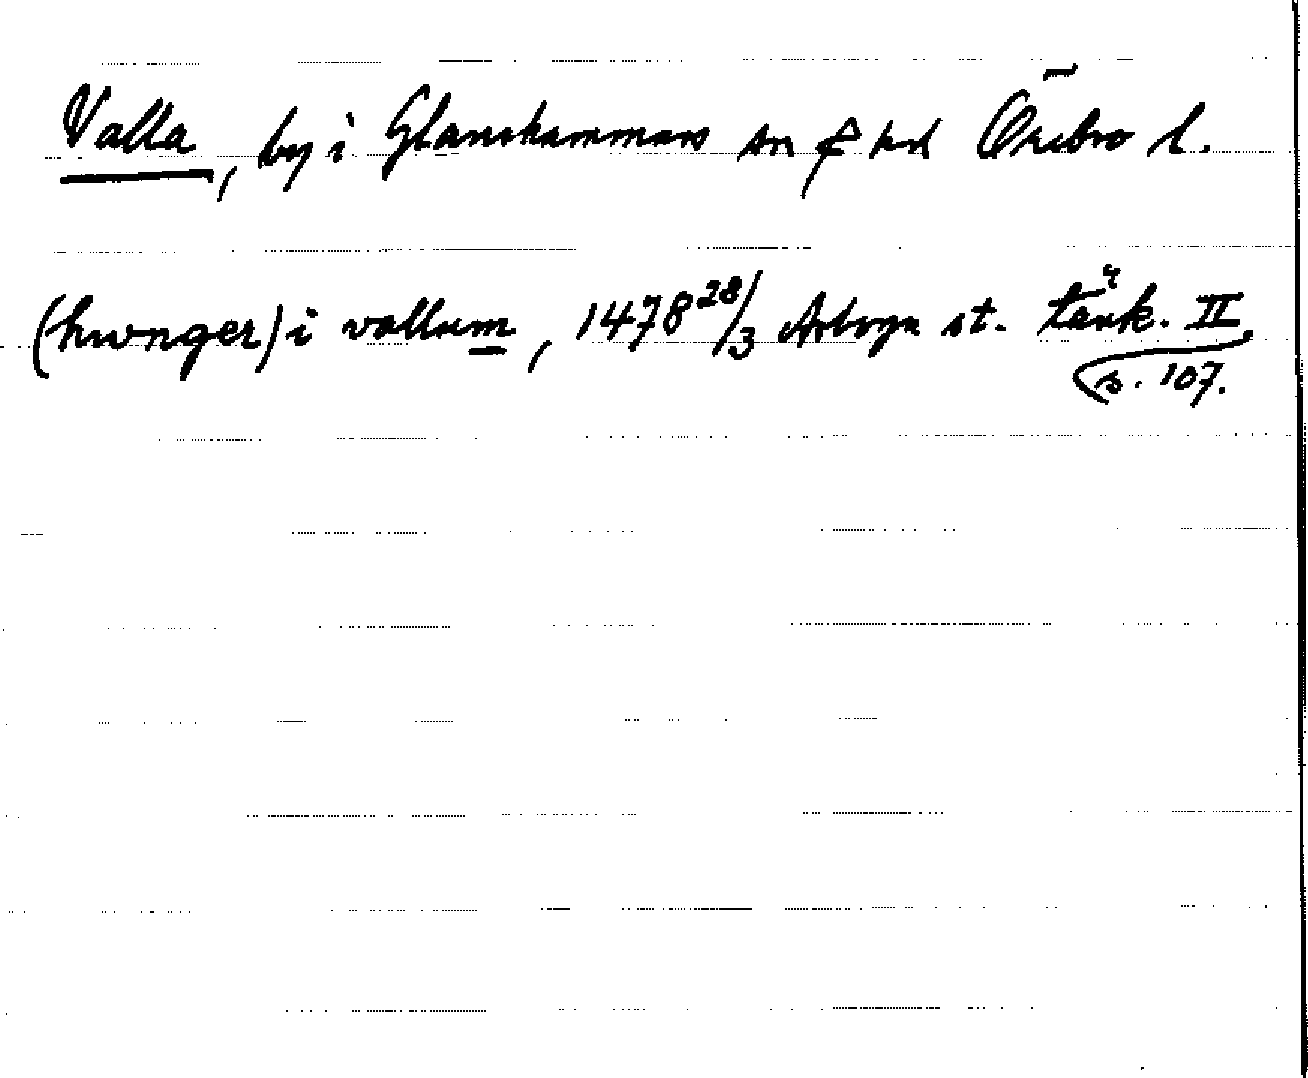 Valla, by i Glanshammars sn o hd Örebro l.
(hwnger) i vallum, 1478 28/3 Arboga st. tänk. II,
s. 107.